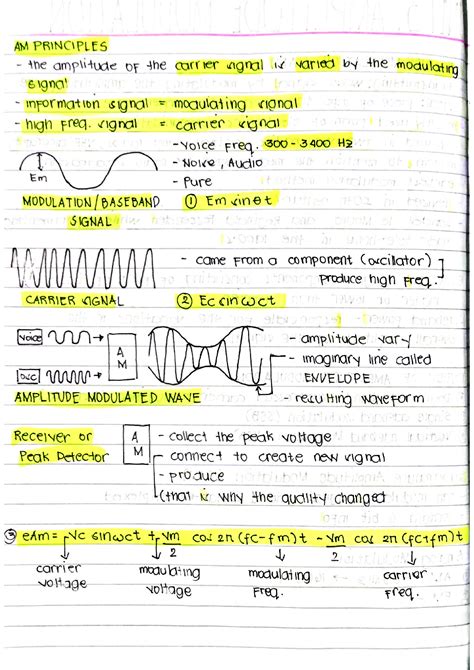 AM PRINCIPLES
- the amplitude of the carrier signal is varied by the modulating
signal
- information signal = modulating signal
- high freq. signal = carrier signal
- Voice Freq. 300 - 3400 Hz
- Noise, Audio
- Pure
Em
MODULATION/BASEBAND
SIGNAL
① Em sin ωt
- came from a component (oscillator)
produce high freq.
CARRIER SIGNAL
② Ec sin ωct
Voice
AM
OSC
- amplitude vary
- imaginary line called
ENVELOPE
- resulting waveform
AMPLITUDE MODULATED WAVE
Receiver or
Peak Detector
AM
- collect the peak voltage
connect to create new signal
- produce
(that is why the quality changed
③ eAm = Vc sin ωct + Vm/2 cos 2π (fc-fm)t - Vm/2 cos 2π (fc+fm)t
carrier voltage
modulating voltage
modulating Freq.
carrier Freq.